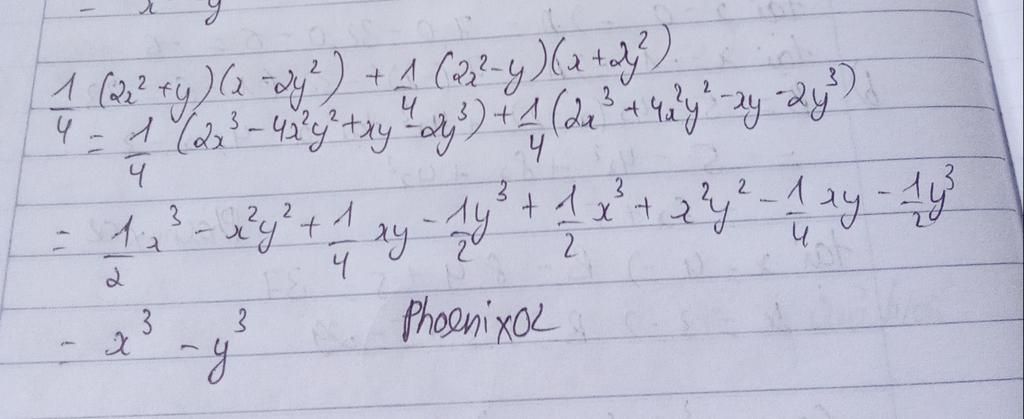 = x y
1/4 (2x² + y)(x - 2y²) + 1/4 (2x² - y)(x + 2y²)
= 1/4 (2x³ - 4x²y² + xy - 2y³) + 1/4 (2x³ + 4x²y² - xy - 2y³)
= 1/2 x³ - x²y² + 1/4 xy - 1/2 y³ + 1/2 x³ + x²y² - 1/4 xy - 1/2 y³
= x³ - y³ PhoenixOL